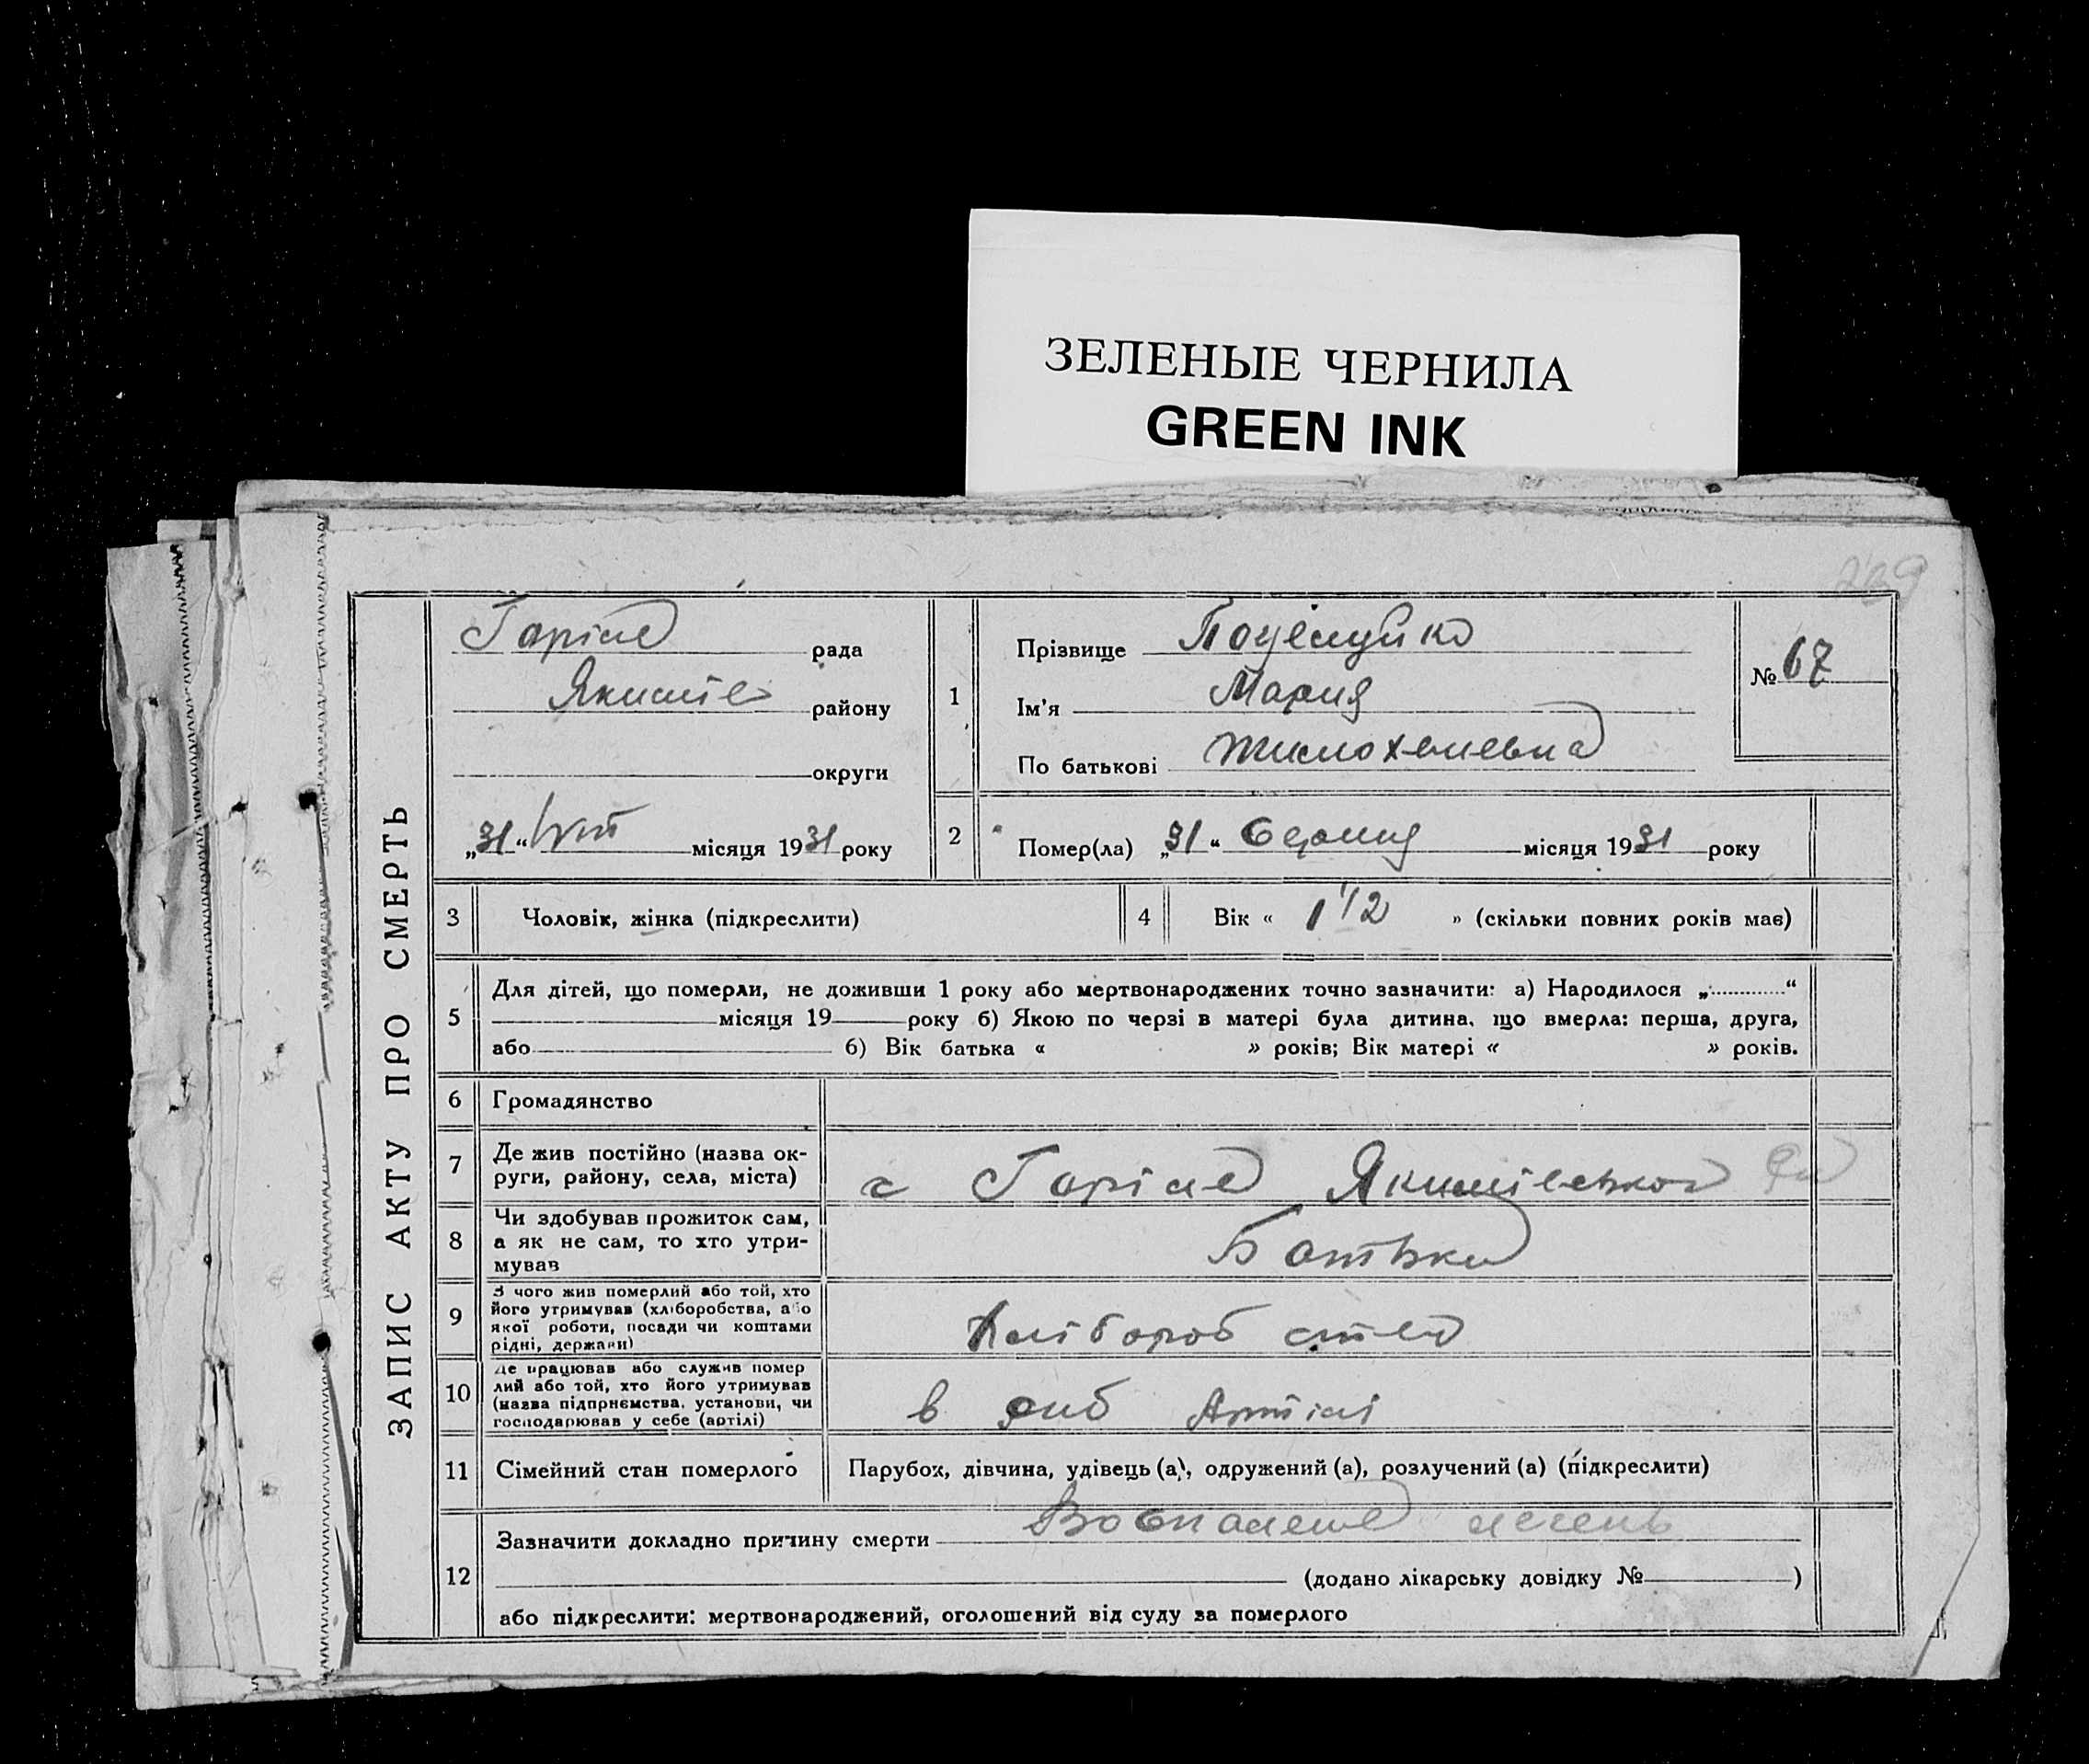 ЗЕЛЕНЫЕ ЧЕРНИЛА
GREEN INK
239
ЗАПИС АКТУ ПРО СМЕРТЬ
рада
району
округи
„31“ VIII місяця 1931 року
1
Прізвище
Ім'я Мария
По батькові
№ 67
2
Помер(ла) „31“ Серпня місяця 1931 року
3
Чоловік, жінка (підкреслити)
4
Вік « 1 1/2 » (скільки повних років має)
5
Для дітей, що померли, не доживши 1 року або мертвонароджених точно зазначити: а) Народилося „ “
місяця 19 року б) Якою по черзі в матері була дитина, що вмерла: перша, друга,
або б) Вік батька « » років; Вік матері « » років.
6
Громадянство
7
Де жив постійно (назва ок-
руги, району, села, міста)
с Якимівського
8
Чи здобував прожиток сам,
а як не сам, то хто утри-
мував
Батьки
9
З чого жив померлий або той, хто
його утримував (хліборобства, або
якої роботи, посади чи коштами
рідні, держави)
Хлібороб
10
Де працював або служив помер
лий або той, хто його утримував
(назва підприємства, установи, чи
господарював у себе (артілі)
в риб Артілі
11
Сімейний стан померлого
Парубок, дівчина, удівець (а), одружений (а), розлучений (а) (підкреслити)
12
Зазначити докладно причину смерти легень
(додано лікарську довідку № )
або підкреслити: мертвонароджений, оголошений від суду за померлого